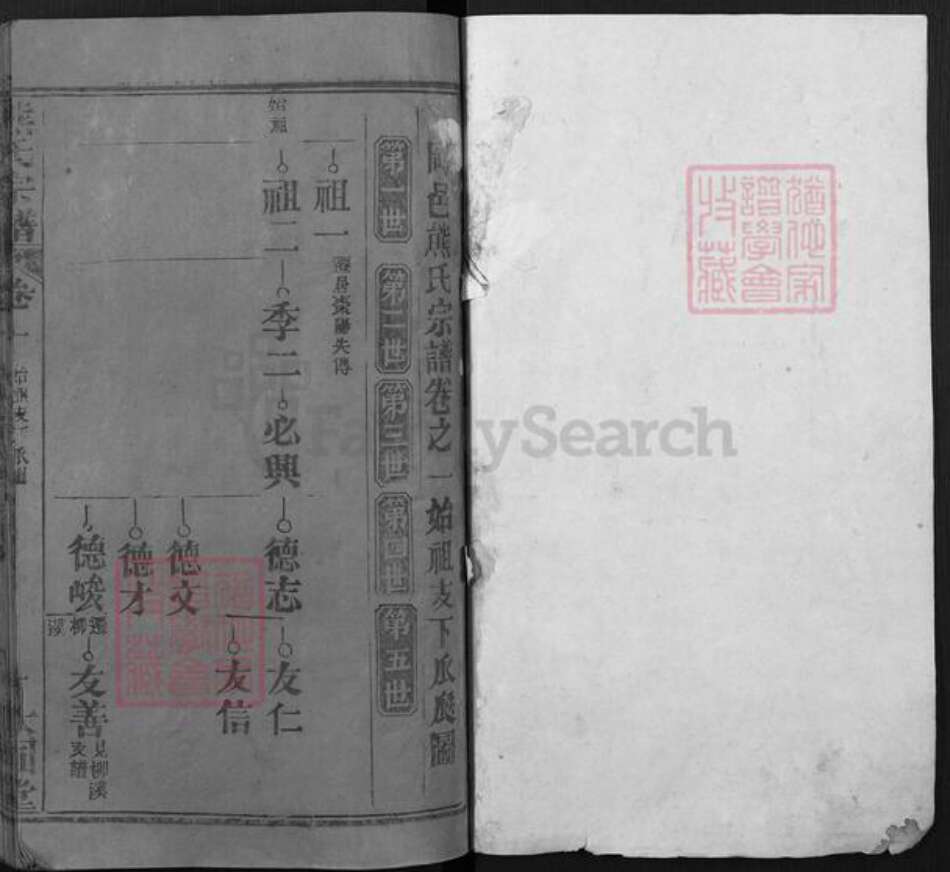 邑熊氏宗譜卷之一始祖支下瓜瓞圖
第一世
第二世
第三世
第四世
第五世
始祖
祖一
遷居棗陽失傳
祖二
季二
必興
德志
友仁
友信
德文
德才
德峻
遷柳溪
友善
見柳溪支譜
熊氏宗譜
卷一
始祖支下瓜瓞圖
FamilySearch
猶他家譜學會收藏
猶他家譜學會收藏